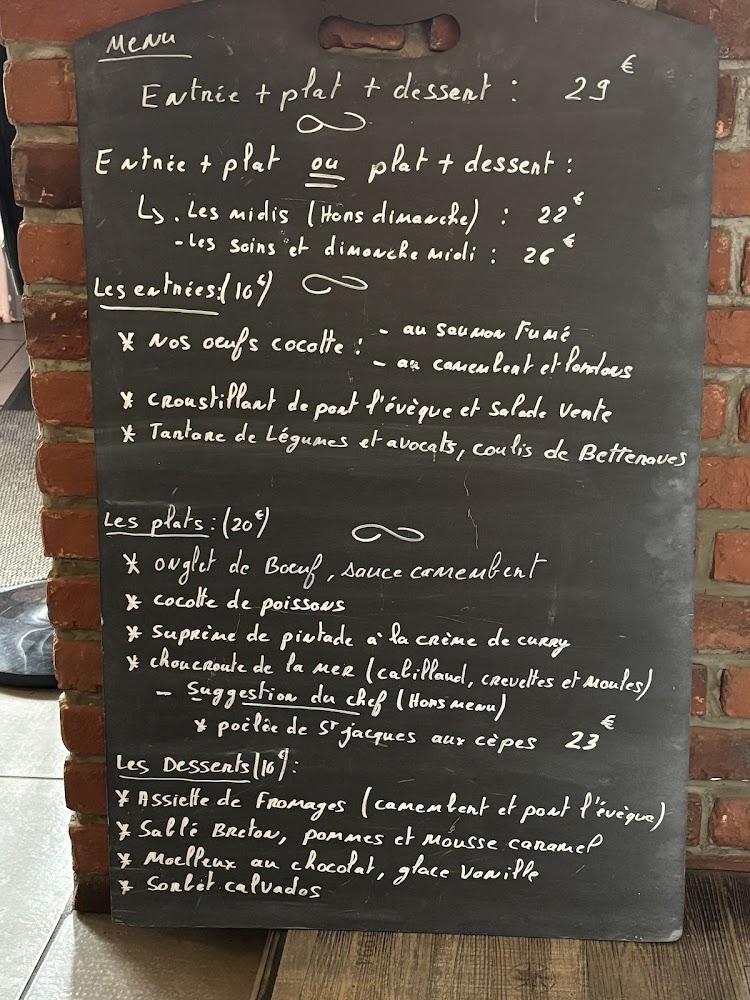 Menu
Entrée + plat + dessert : 29€
Entrée + plat ou plat + dessert :
↳ . Les midis (Hors dimanche) : 22€
- Les soirs et dimanche midi : 26€
Les entrées : (10€)
* Nos oeufs cocotte : - au saumon Fumé
- au camembert et lardons
* croustillant de pont l'évèque et Salade verte
* Tartare de Légumes et avocats, coulis de Betteraves
Les plats : (20€)
* onglet de Boeuf, sauce camembert
* cocotte de poissons
* suprème de pintade à la crème de curry
* choucroute de la mer (cabillaud, crevettes et Moules)
- Suggestion du chef (Hors menu)
* poèlée de St jacques aux cèpes 23€
Les Desserts (10€) :
* Assiette de Fromages (camembert et pont l'évèque)
* Sablé Breton, pommes et Mousse caramel
* Moelleux au chocolat, glace Vanille
* Sorbet calvados